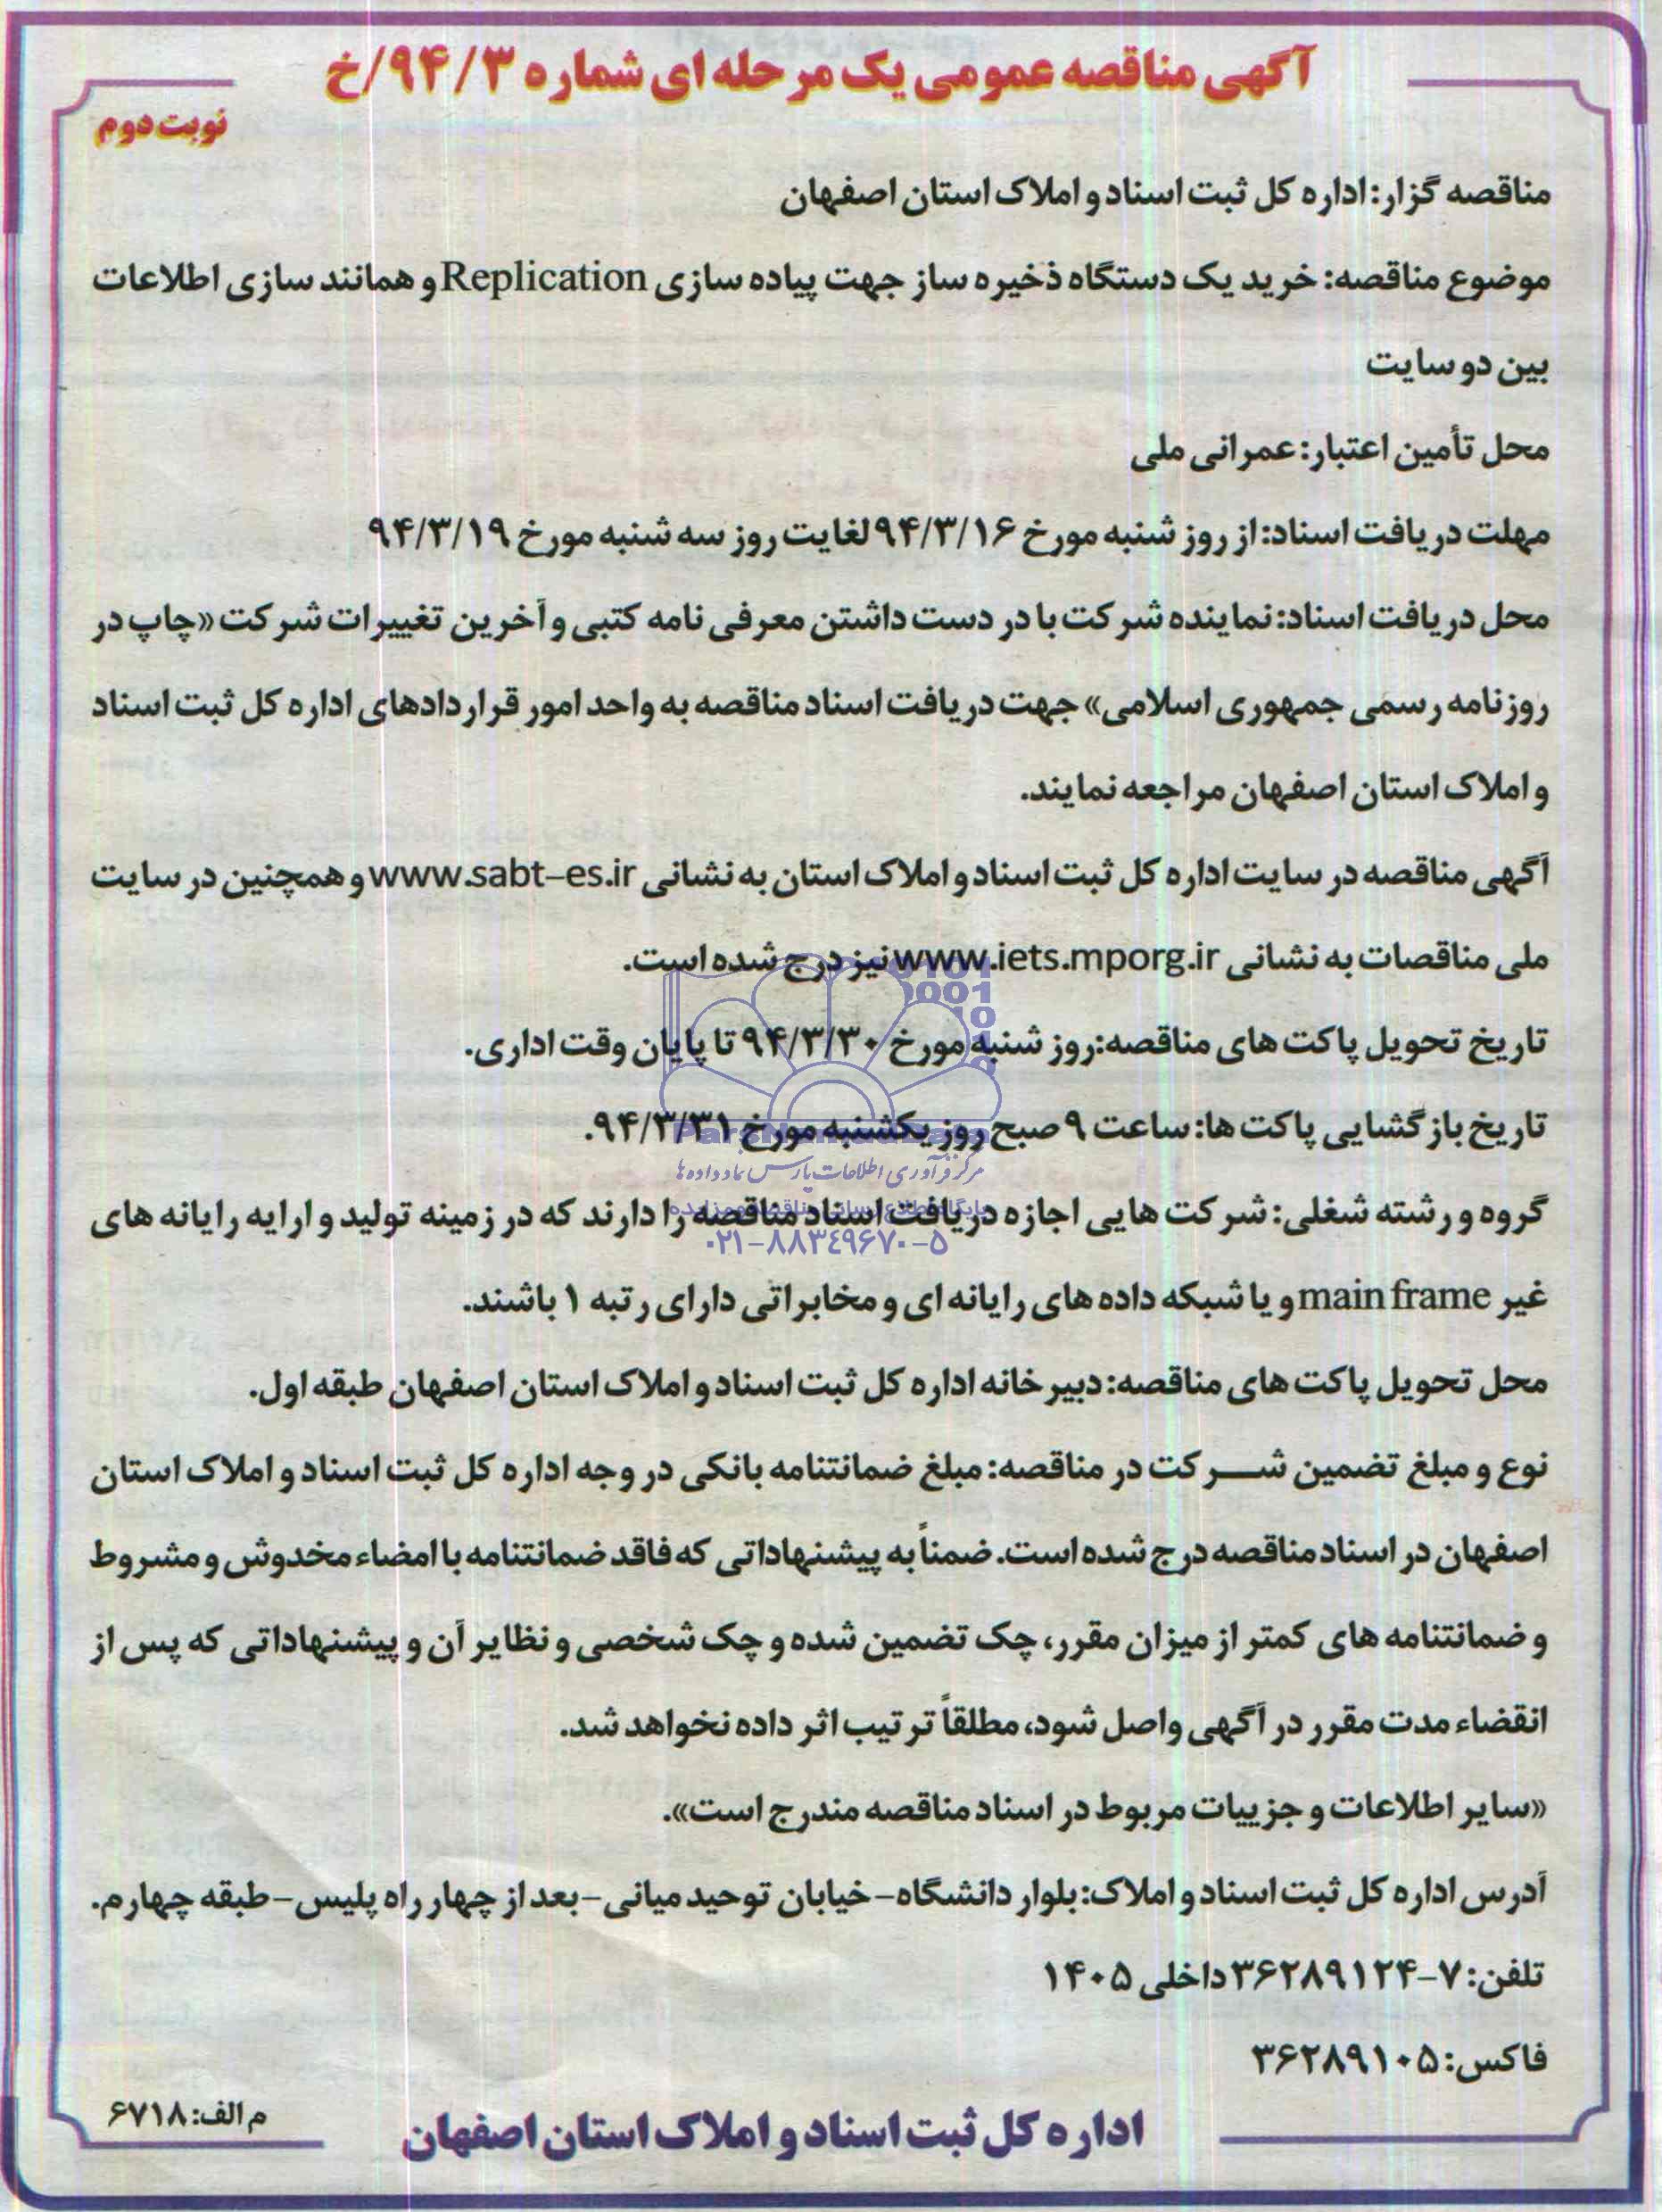 آگهی مناقصه عمومی یک مرحله ای شماره ۹۴/۳/خ
نوبت دوم
مناقصه گزار: اداره کل ثبت اسناد و املاک استان اصفهان
موضوع مناقصه: خرید یک دستگاه ذخیره ساز جهت پیاده سازی Replication و همانند سازی اطلاعات
بین دو سایت
محل تأمین اعتبار: عمرانی ملی
مهلت دریافت اسناد: از روز شنبه مورخ ۹۴/۳/۱۶ لغایت روز سه شنبه مورخ ۹۴/۳/۱۹
محل دریافت اسناد: نماینده شرکت با در دست داشتن معرفی نامه کتبی و آخرین تغییرات شرکت «چاپ در
روزنامه رسمی جمهوری اسلامی» جهت دریافت اسناد مناقصه به واحد امور قراردادهای اداره کل ثبت اسناد
و املاک استان اصفهان مراجعه نمایند.
آگهی مناقصه در سایت اداره کل ثبت اسناد و املاک استان به نشانی www.sabt-es.ir و همچنین در سایت
ملی مناقصات به نشانی www.iets.mporg.ir نیز درج شده است.
تاریخ تحویل پاکت های مناقصه: روز شنبه مورخ ۹۴/۳/۳۰ تا پایان وقت اداری.
تاریخ بازگشایی پاکت ها: ساعت ۹ صبح روز یکشنبه مورخ ۹۴/۳/۳۱.
مرکز فرآوری اطلاعات پارس نماد داده ها
گروه و رشته شغلی: شرکت هایی اجازه دریافت اسناد مناقصه را دارند که در زمینه تولید و ارایه رایانه های
۰۲۱-۸۸۳۴۹۶۷۰-۵
غیر main frame و یا شبکه داده های رایانه ای و مخابراتی دارای رتبه ۱ باشند.
محل تحویل پاکت های مناقصه: دبیرخانه اداره کل ثبت اسناد و املاک استان اصفهان طبقه اول.
نوع و مبلغ تضمین شرکت در مناقصه: مبلغ ضمانتنامه بانکی در وجه اداره کل ثبت اسناد و املاک استان
اصفهان در اسناد مناقصه درج شده است. ضمناً به پیشنهاداتی که فاقد ضمانتنامه با امضاء مخدوش و مشروط
و ضمانتنامه های کمتر از میزان مقرر، چک تضمین شده و چک شخصی و نظایر آن و پیشنهاداتی که پس از
انقضاء مدت مقرر در آگهی واصل شود، مطلقاً ترتیب اثر داده نخواهد شد.
«سایر اطلاعات و جزییات مربوط در اسناد مناقصه مندرج است».
آدرس اداره کل ثبت اسناد و املاک: بلوار دانشگاه - خیابان توحید میانی - بعد از چهار راه پلیس - طبقه چهارم.
تلفن: ۷-۳۶۲۸۹۱۲۴ داخلی ۱۴۰۵
فاکس: ۳۶۲۸۹۱۰۵
م الف: ۶۷۱۸
اداره کل ثبت اسناد و املاک استان اصفهان